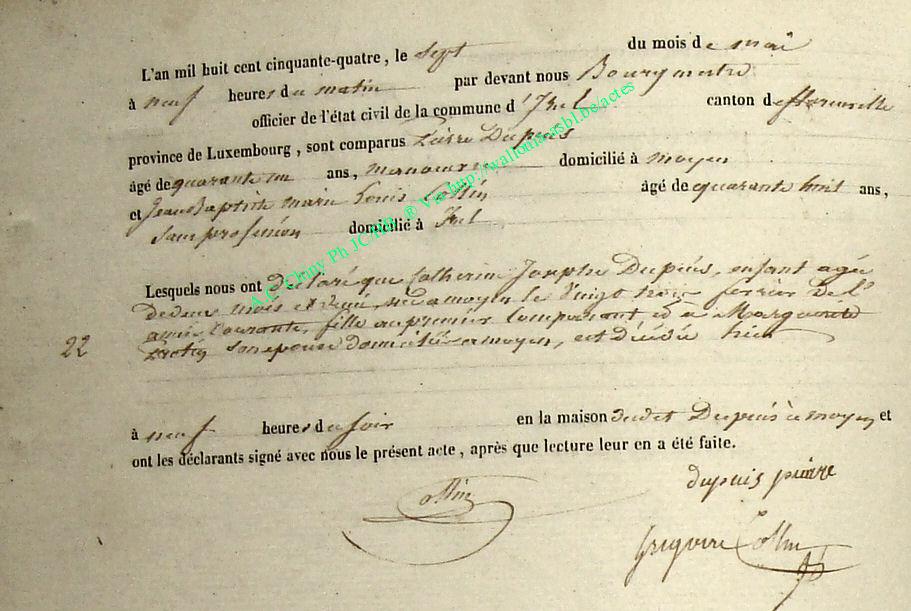 L'an mil huit cent cinquante-quatre, le sept du mois de mai
à neuf heures du matin par devant nous Bourgmestre
officier de l'état civil de la commune d'Izel canton de florenville
province de Luxembourg, sont comparus Pierre Dupuis
âgé de quarante un ans, manoeuvre domicilié à moyen
et Jean Baptiste marie Louis Collin âgé de quarante huit ans,
Sans profession domicilié à Izel
Lesquels nous ont déclaré que Catherine Josephe Dupuis, enfant agée
de deux mois et demi, née a moyen le Vingt trois fevrier de l'
année Courante, fille au premier Comparant et a Marguerite
22
son epouse domiciliés a moyen, est décédée hier
à neuf heures du soir en la maison dudit Dupuis à moyen et
ont les déclarants signé avec nous le présent acte, après que lecture leur en a été faite.
Collin
dupuis pierre
Gregoire Collin
A.C. Chiny Ph JCARD ® Via http://wallonia.asbl.be/actes